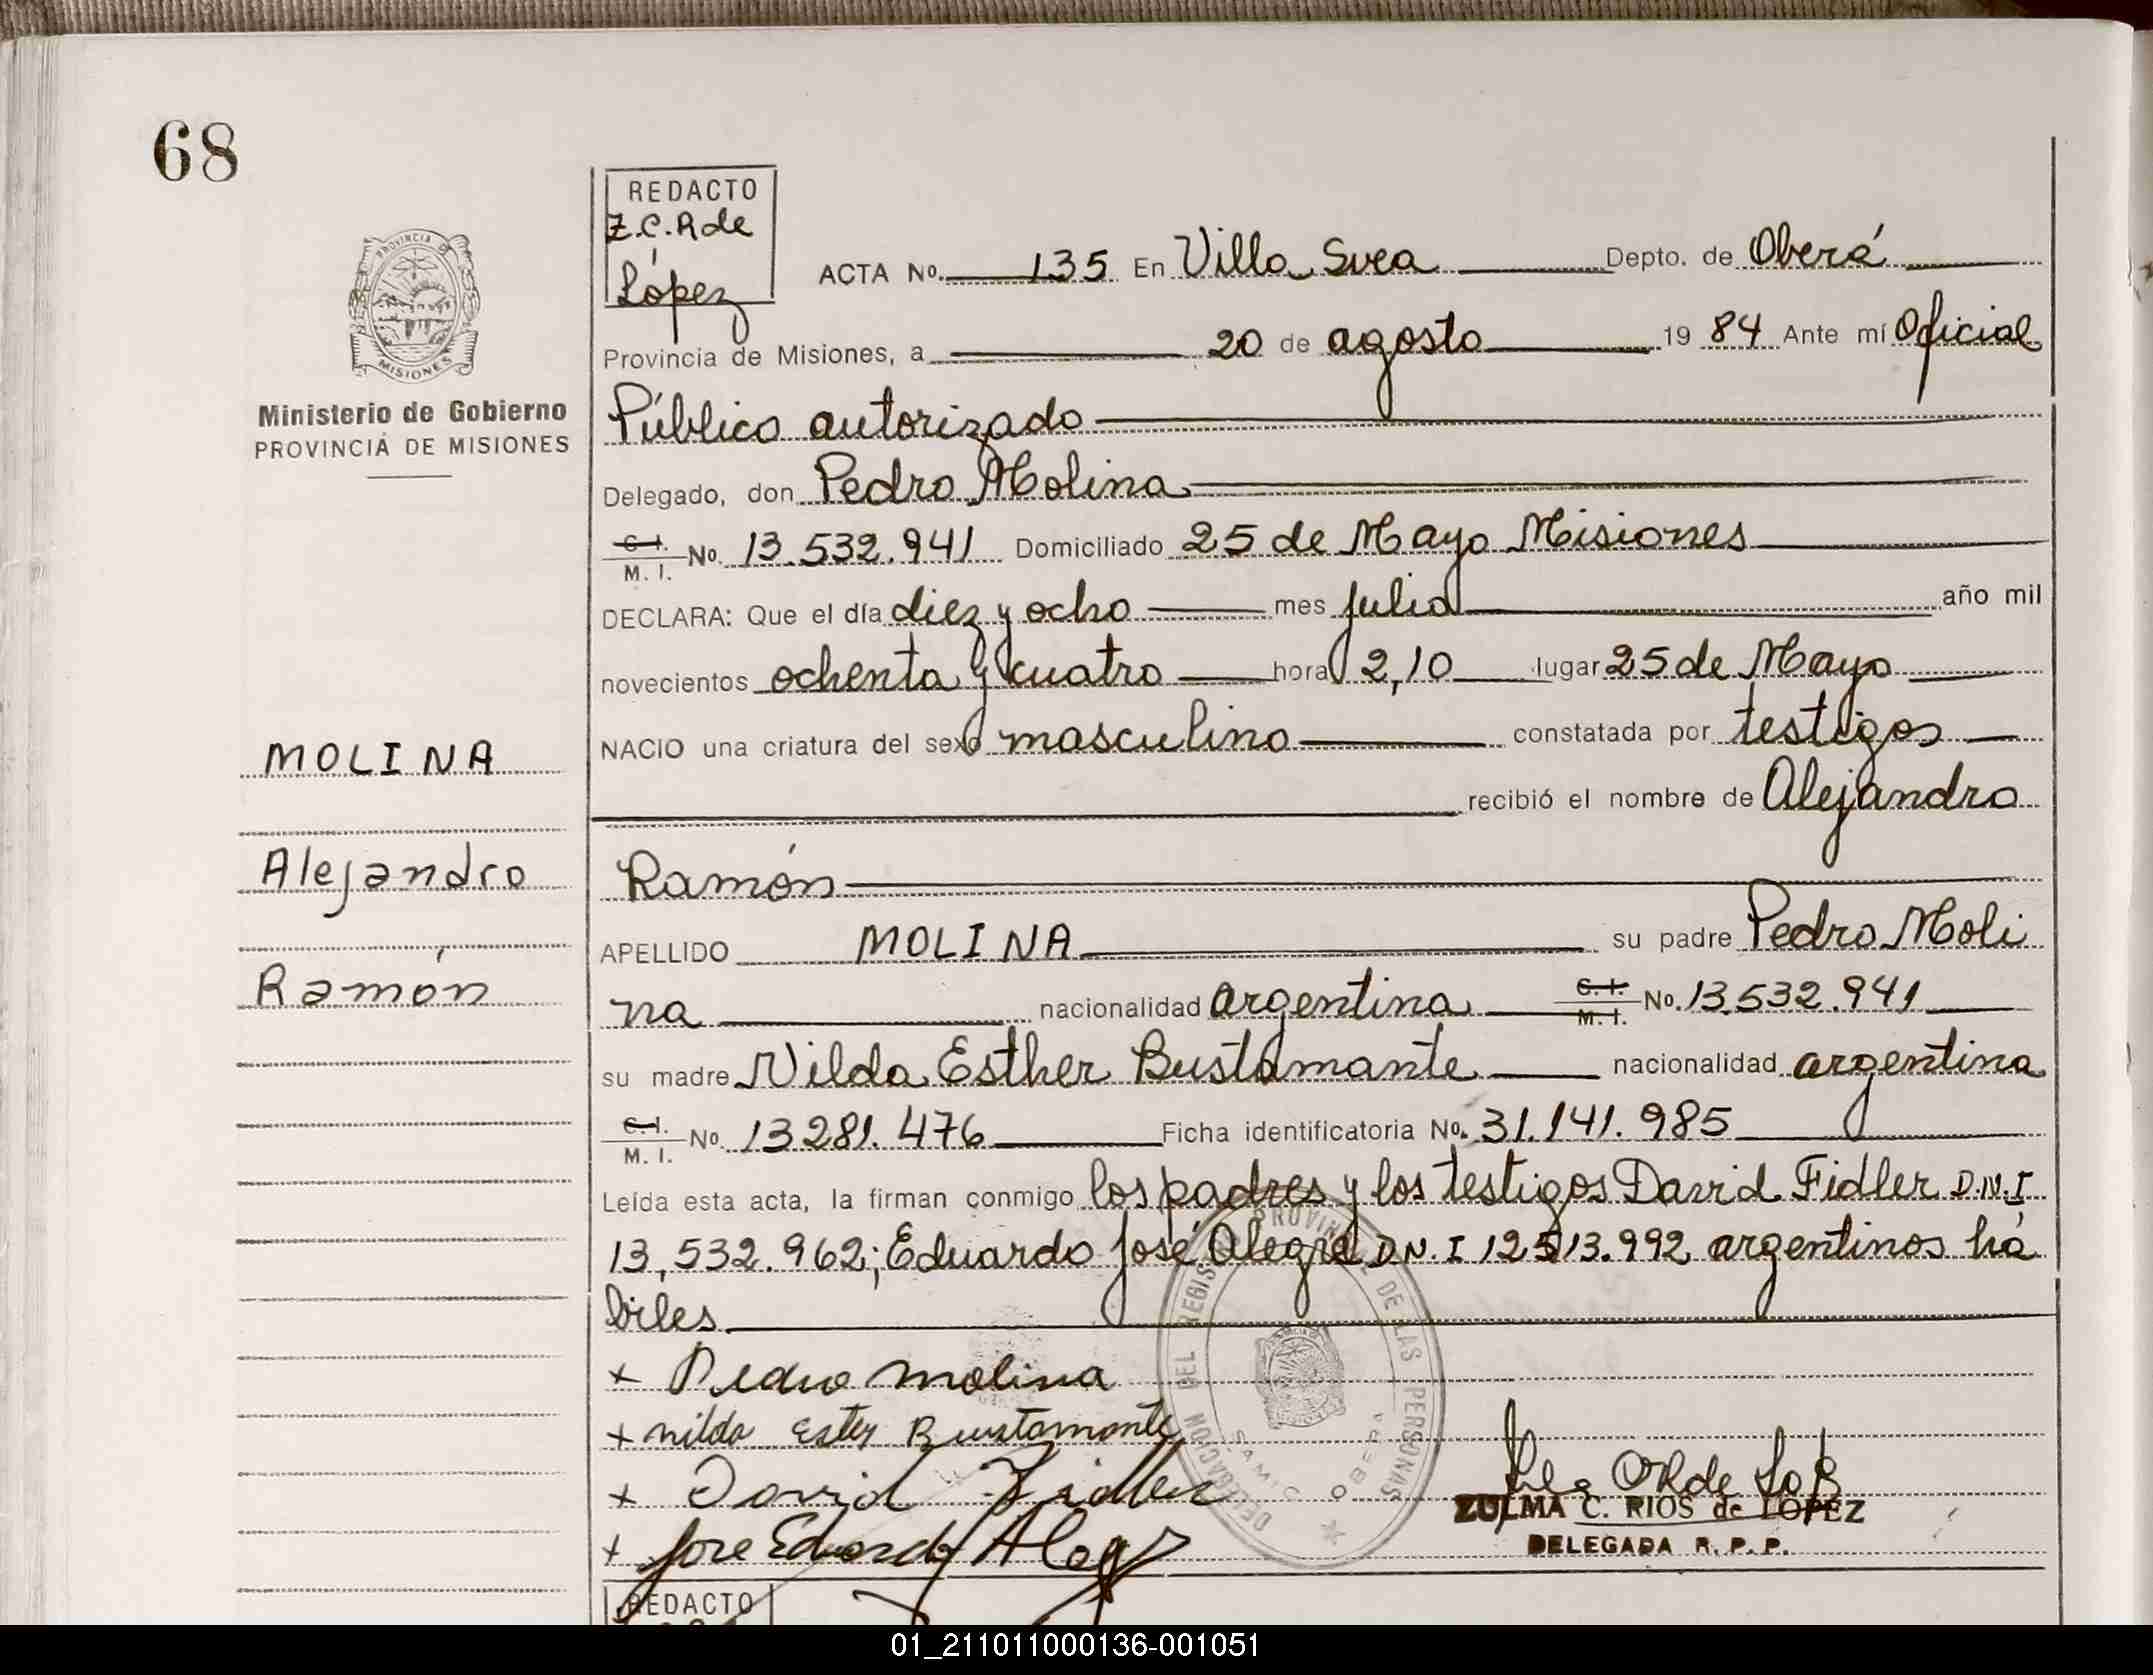 68
REDACTO
Z.C.R de
López
PROVINCIA DE
MISIONES
Ministerio de Gobierno
PROVINCIA DE MISIONES
ACTA No. 135 En Villa Svea Depto. de Oberá
Provincia de Misiones, a 20 de agosto 1984 Ante mí Oficial
Público autorizado
Delegado, don Pedro Molina
C.I. M. I. No. 13.532.941 Domiciliado 25 de Mayo Misiones
DECLARA: Que el día diez y ocho mes julio año mil
novecientos ochenta y cuatro hora 2,10 lugar 25 de Mayo
NACIO una criatura del sexo masculino constatada por testigos
recibió el nombre de Alejandro
Ramón
MOLINA
Alejandro
Ramón
APELLIDO MOLINA su padre Pedro Moli
na nacionalidad argentina C.I. M. I. No. 13.532.941
su madre Nilda Esther Bustamante nacionalidad argentina
C.I. M. I. No. 13281.476 Ficha identificatoria No. 31.141.985
Leída esta acta, la firman conmigo los padres y los testigos David Fidler D.N.I
13,532.962; Eduardo José Alegre D.N.I 12513.992 argentinos há
biles
+ Pedro Molina
+ nilda Ester Bustamante
+ David Fidler
+ Jose Eduardo
DELEGACION DEL REGIS PROVINCIAL DE LAS PERSONAS
SAMIC OBERA
ZULMA C. RIOS de LOPEZ
DELEGADA R. P. P.
REDACTO
01_211011000136-001051